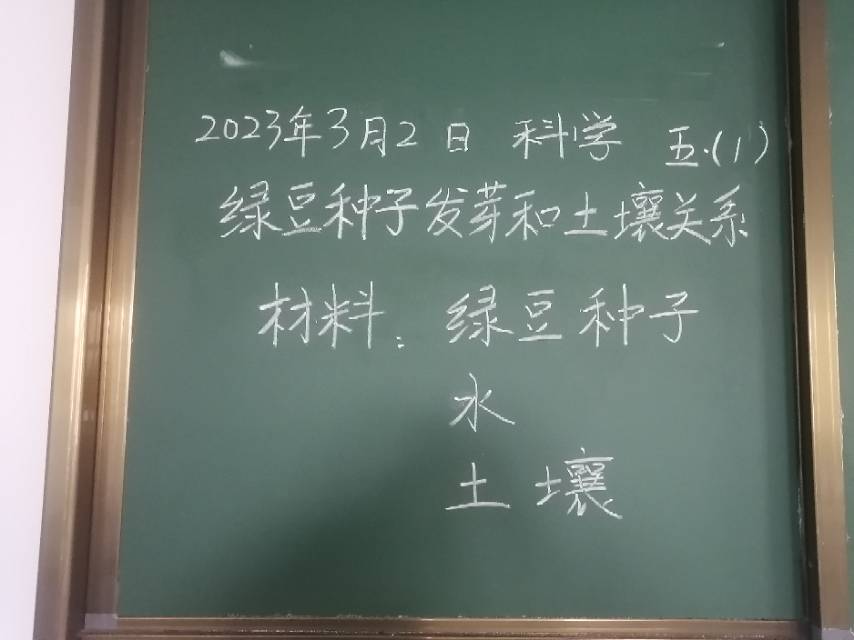 2023年3月2日 科学 五.(1)
绿豆种子发芽和土壤关系
材料：绿豆种子
水
土壤